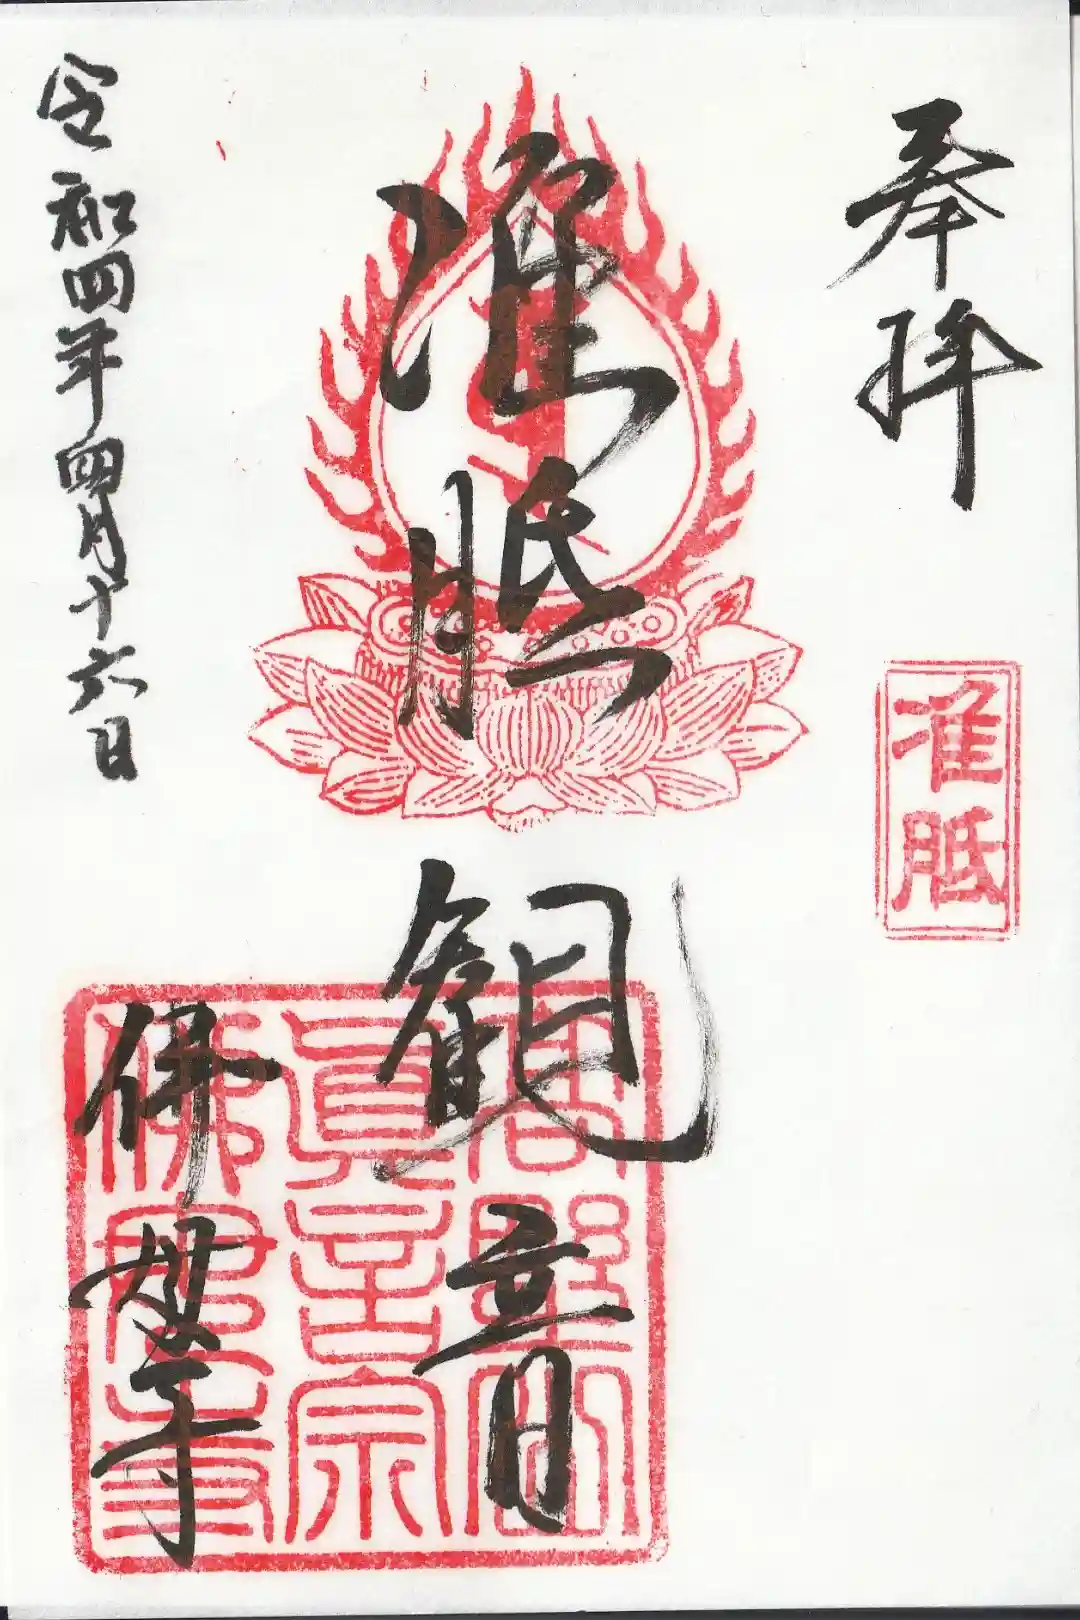 奉拝
准胝
准胝観音
高野山
眞言宗
佛母寺
佛母寺
令和四年四月十六日